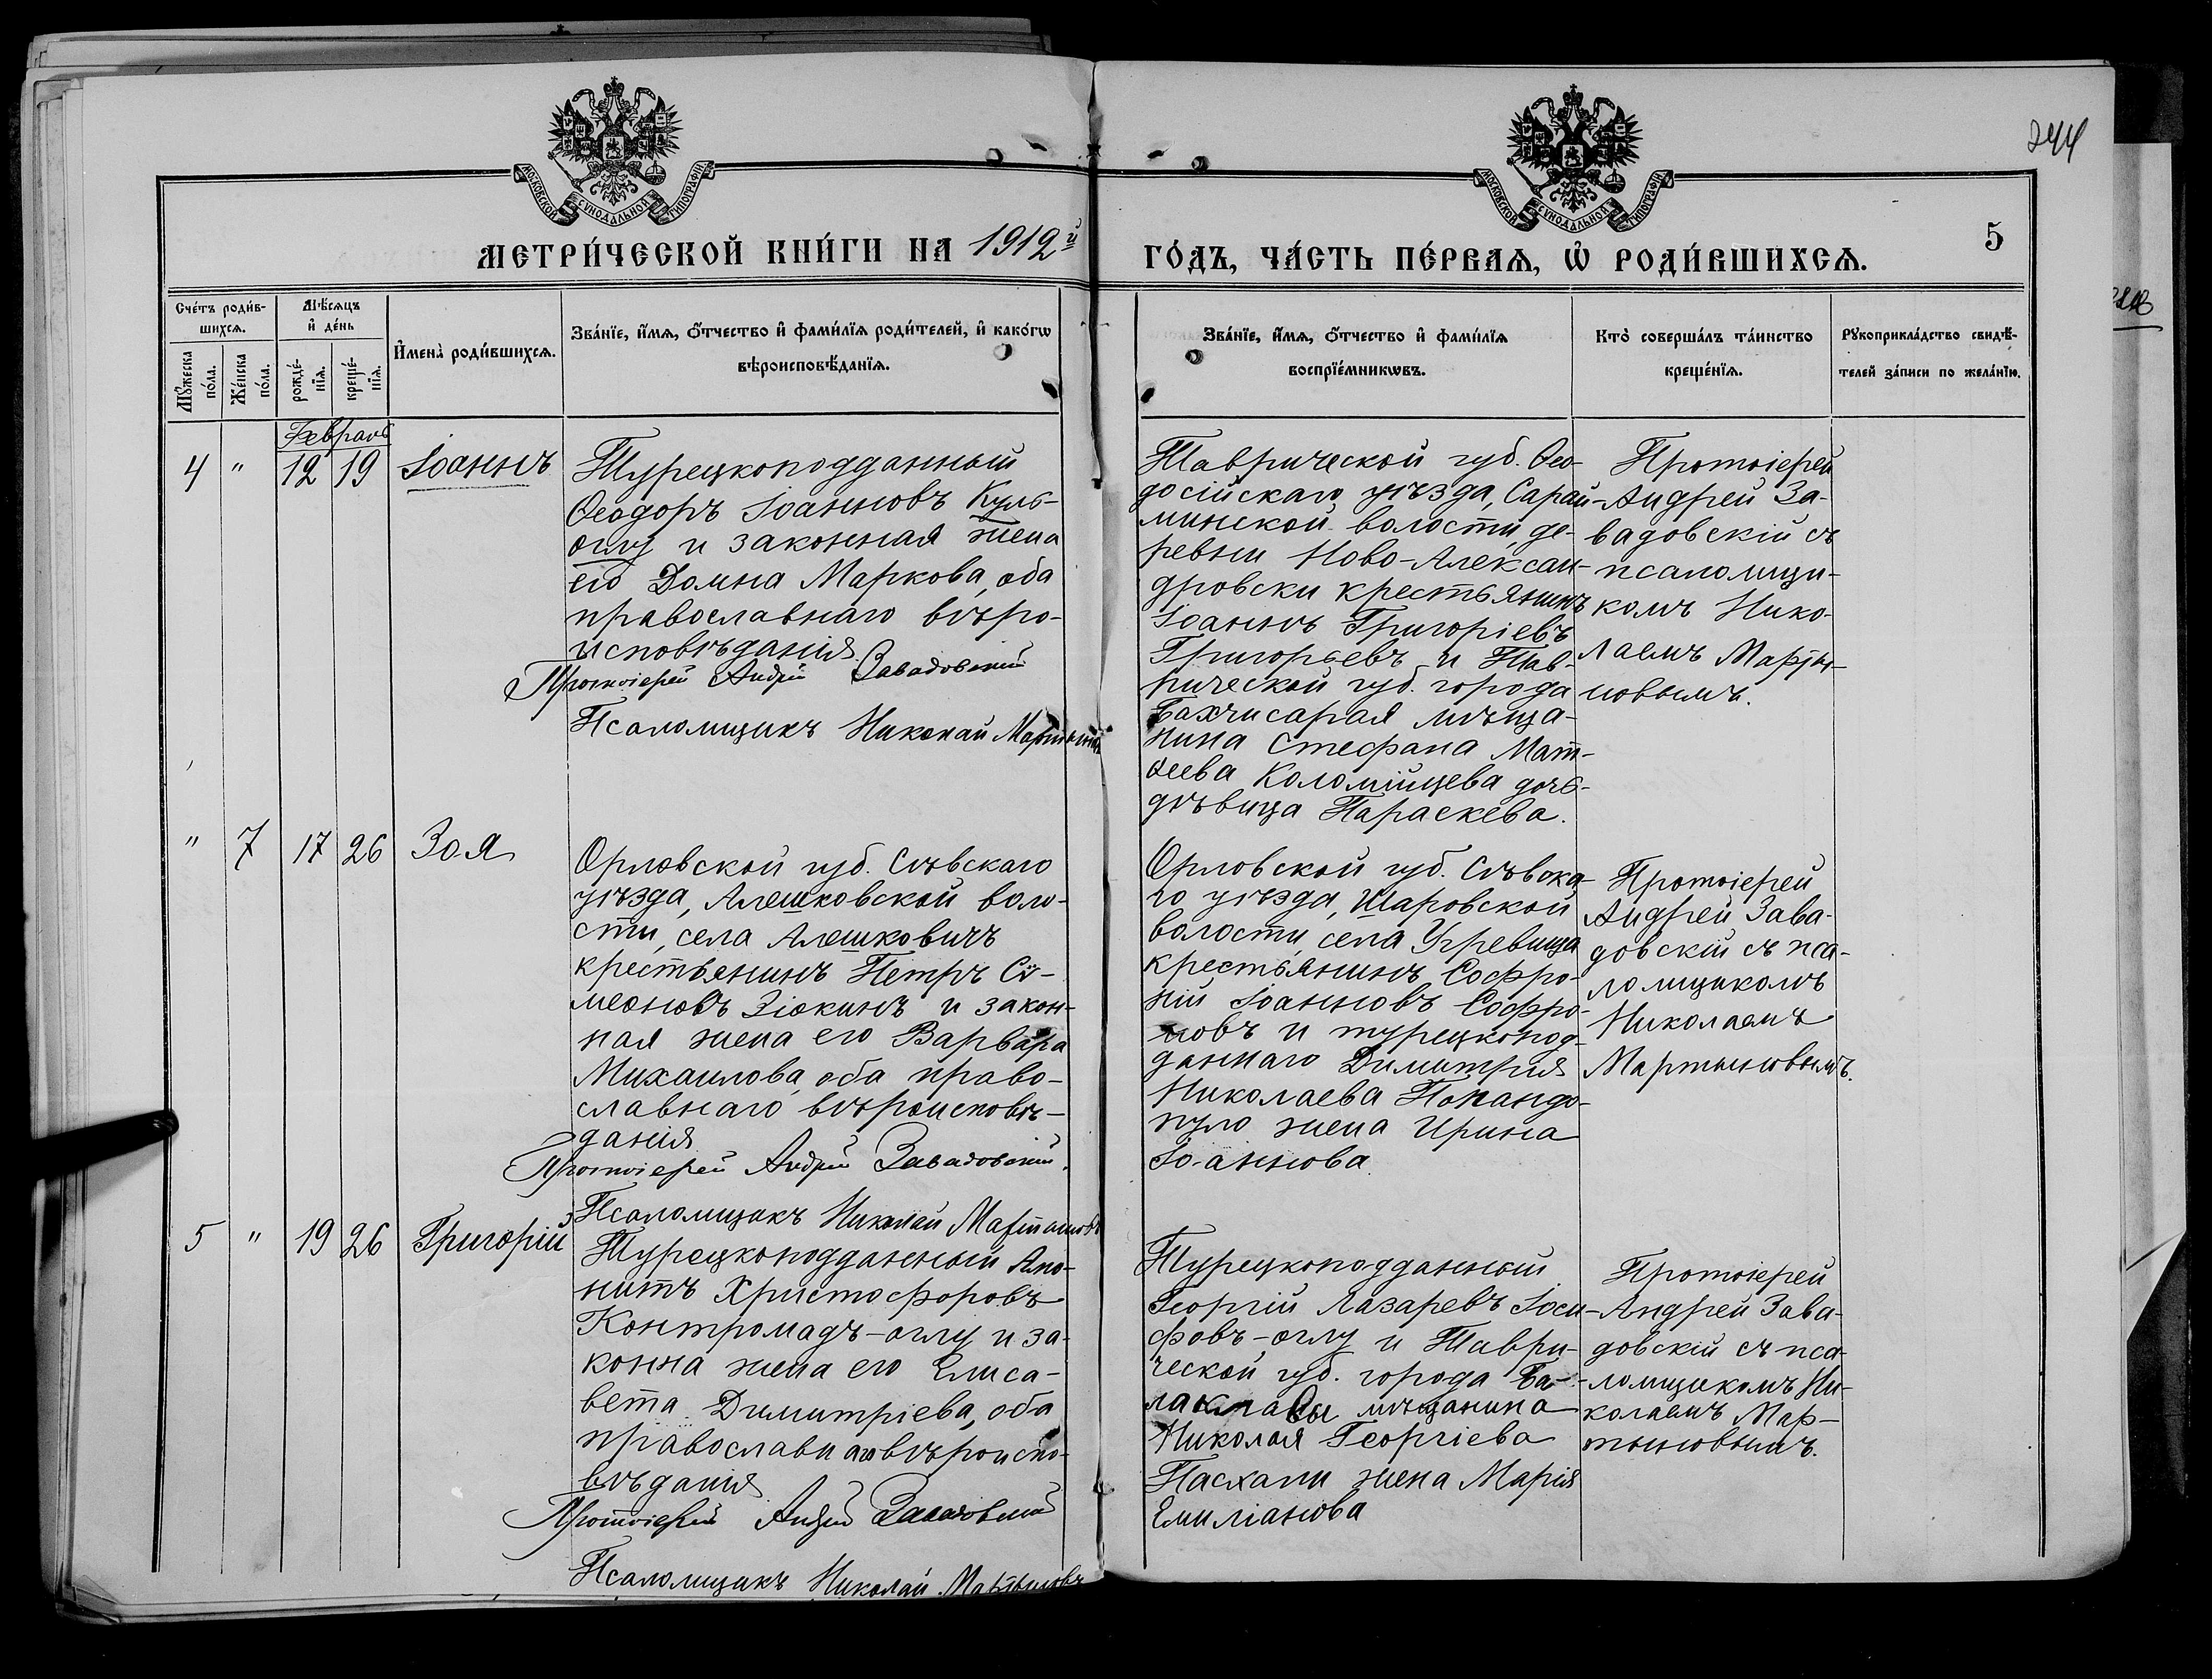 244
МОСКОВСКОЙ СѴНОДАЛЬНОЙ ТИПОГРАФІИ
МОСКОВСКОЙ СѴНОДАЛЬНОЙ ТИПОГРАФІИ
МЕТРИ́ЧЕСКОЙ КНИ́ГИ НА 1912й
ГО́ДЪ, ЧА́СТЬ ПЕ́РВАѦ, Ѡ҆ РОДИ́ВШИХСѦ.
5
Сче́тъ роди́в-
шихсѧ.
Мꙋ́жеска
по́ла.
Же́нска
по́ла.
Мѣ́сѧцъ
и҆ де́нь
рожде́-
нїѧ.
креще́-
нїѧ.
И҆мена̀ роди́вшихсѧ.
Зва́нїе, и҆́мѧ, ѻ҆́тчество и҆ фами́лїѧ роди́телей, и҆ како́гѡ
вѣроисповѣ́данїѧ.
Зва́нїе, и҆́мѧ, ѻ҆́тчество и҆ фами́лїѧ
воспрїе́мникѡвъ.
Кто̀ соверша́лъ та́инство
креще́нїѧ.
Рꙋкоприкла́дство свидѣ́-
телей за́писи по жела́нїю.
Февраль
4 " 12 19 Іоаннъ
Турецкоподданный
Ѳеодоръ Іоанновъ Куль-
оглу и законная жена
его Домна Маркова, оба
православнаго вѣро-
исповѣданія
Протоіерей Андрей Завадовскій
Псаломщикъ Николай Мартыновъ
Таврической губ. Ѳео-
досійскаго уѣзда, Сарай-
минской волости, де-
ревни Ново-Алексан-
дровски крестьянинъ
Іоаннъ Григоріевъ
Григорьевъ и Тав-
рической губ. города
Бахчисарая мѣща-
нина Стефана Мат-
ѳеева Коломійцева дочь-
дѣвица Параскева.
Протоіерей
Андрей За-
вадовскій съ
псаломщи-
комъ Нико-
лаемъ Марты-
новымъ.
" 7 17 26 Зоя
Орловской губ. Сѣвскаго
уѣзда, Алешковской воло-
сти, села Алешковичъ
крестьянинъ Петръ Сѵ-
меоновъ Зюкинъ и закон-
ная жена его Варвара
Михаилова, оба право-
славнаго вѣроисповѣ-
данія
Протоіерей Андрей Завадовскій.
Псаломщикъ Николай Мартыновъ
Орловской губ. Сѣвска-
го уѣзда, Шаровской
волости села Угревища
крестьянинъ Софро-
ній Іоанновъ Софро-
новъ и турецкопод-
даннаго Димитрія
Николаева Попандо-
пуло жена Ирина
Іоаннова.
Протоіерей
Андрей Зава-
довскій съ пса-
ломщикомъ
Николаемъ
Мартыновымъ.
5 " 19 26 Григорій
Турецкоподданный Апо-
нитъ Христофоровъ
Контромадъ-оглу и за-
конна жена его Елиса-
вета Димитріева, оба
православнаго вѣроиспо-
вѣданія
Протоіерей Андрей Завадовскій
Псаломщикъ Николай Мартыновъ
Турецкоподданный
Георгій Лазаревъ Іоси-
фовъ-оглу и Таври-
ческой губ. города Ба-
лаклавы мѣщанина
Николая Георгіева
Пасхали жена Марія
Емиліанова
Протоіерей
Андрей Зава-
довскій съ пса-
ломщикомъ Ни-
колаемъ Мар-
тыновымъ.